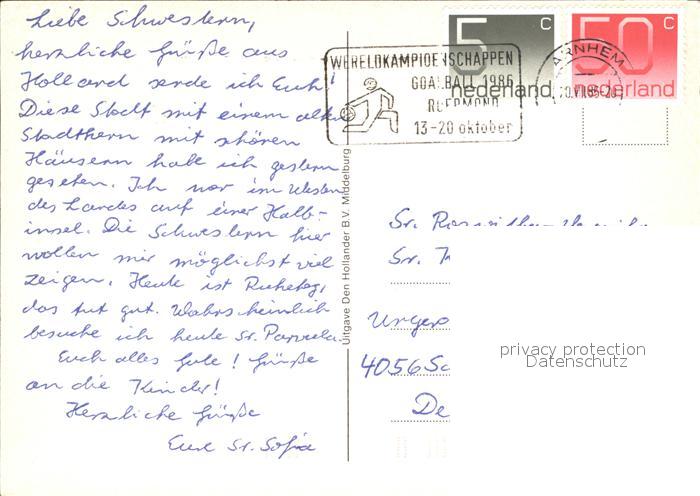 Liebe Schwestern,
herzliche Grüße aus
Holland sende ich Euch!
Diese Stadt mit einem alten
Stadtkern mit schönen
Häusern habe ich gestern
gesehen. Ich war im Westen
des Landes auf einer Halb-
insel. Die Schwestern hier
wollen mir möglichst viel
zeigen. Heute ist Ruhetag,
das tut gut. Wahrscheinlich
besuche ich heute Sr.
Euch alles Gute! Grüße
an die Kinder!
Herzliche Grüße
Eure Sr. Sofia
Uitgave Den Hollander B.V. Middelburg
5 c
nederland
50 c
nederland
WERELDKAMPIOENSCHAPPEN
GOALBALL 1986
ROERMOND
13-20 oktober
ARNHEM
Sr.
Sr.
4056 Sc
De
privacy protection
Datenschutz